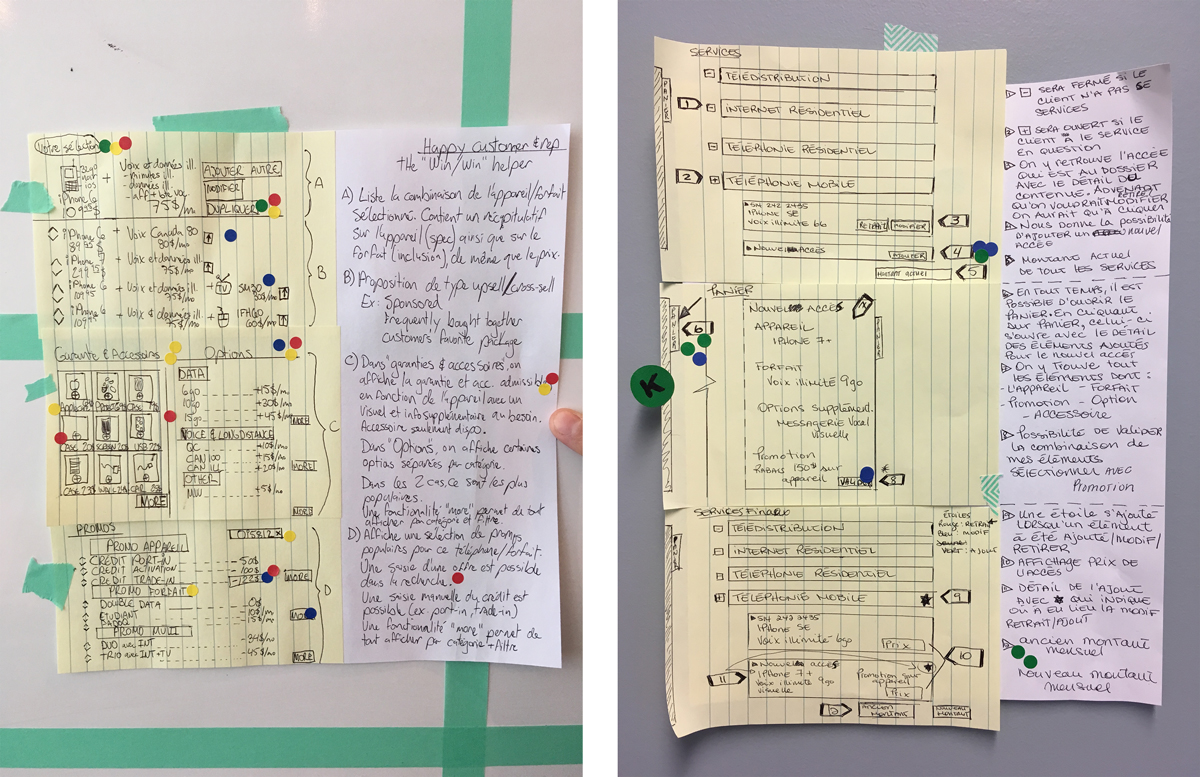 Votre sélection
32go
noir
ios
iPhone 6
109.95$
+
Voix et données ill.
- minutes ill.
- données ill.
- aff + bte voc
75$/mo
AJOUTER AUTRE
MODIFIER
DUPLIQUER
A
iPhone 6
89.95$
+ Voix Canada 80
80$/mo
iPhone
299.95$
+ Voix et données ill.
75$/mo
iPhone 6
109.95
+ Voix et données ill.
75$/mo
+ TV
iPhone 6
109.95
+ Voix & données ill.
75$/mo
+
60$/mo
B
Garantie & Accessoires
Options
CASE 20$
USB 22$
CASE 23$
MORE
DATA
6go +15$/mo
10go +30$/mo
15go +45$/mo
MORE
VOICE & LONG DISTANCE
QC +10$/mo
CAN 100 +15$/mo
CAN ILL +20$/mo
MORE!
OTHER
+5$/mo
MORE
C
PROMOS
PROMO APPAREIL
CREDIT PORT-IN -50$
CREDIT ACTIVATION -100$
CREDIT TRADE-IN -223$
MORE
PROMO FORFAIT
DOUBLE DATA 0$
ETUDIANT 10$/mo
15$/mo
MORE
PROMO MULTI
DUO avec INT -34$/mo
TRIO avec INT+TV -45$/mo
MORE
D
Happy customer & rep
the "Win/win" helper
A) Liste la combinaison de l'appareil/forfait
sélectionné. Contient un récapitulatif
sur l'appareil (spec) ainsi que sur le
forfait (inclusion), de même que le prix.
B) Proposition de type upsell/cross-sell
Ex: Sponsored
Frequently bought together
customers favorite package
C) Dans "garanties & accessoires, on
affiche la garantie et acc. admissible
en fonction de l'appareil avec un
visuel et info supplémentaire au besoin.
Accessoire seulement dispo.
Dans "Options", on affiche certaines
options séparées par catégorie.
Dans les 2 cas, ce sont les plus
populaires.
Une fonctionalité "more" permet de tout
afficher par catégorie et filtre.
D) Affiche une sélection de promos
populaires pour ce téléphone/forfait.
Une saisie d'une offre est possible
dans la recherche.
Une saisie manuelle du crédit est
possible (ex port-in, trade-in)
Une fonctionalité "more" permet de
tout afficher par catégorie + filtre
SERVICES
PANIER
TÉLÉDISTRIBUTION
1
INTERNET RÉSIDENTIEL
TÉLÉPHONIE RÉSIDENTIEL
2
TÉLÉPHONIE MOBILE
SN 242 2435
IPHONE SE
Voix illimité 6G
RETRAIT
MODIFIER
3
Nouvel accès
AJOUTER
4
MONTANT ACTUEL
5
PANIER
6
K
Nouvel accès
APPAREIL
IPHONE 7+
FORFAIT
Voix illimité 9go
Options supplément.
MESSAGERIE Vocal
visuelle
Promotion
Rabais 150$ sur
appareil
VALIDER
8
SERVICES Finaux
ÉTOILES
Rouge: RETRAIT
Bleu: MODIF
VERT: AJOUT
TÉLÉDISTRIBUTION
INTERNET RÉSIDENTIEL
TÉLÉPHONIE RÉSIDENTIEL
TÉLÉPHONIE MOBILE
9
SN 242 2435
IPHONE SE
Voix illimité 6go
Prix
10
Nouvel accès
IPHONE 7+
Voix illimité 9go
visuelle
Promotion sur
appareil
Prix
11
ANCIEN
MONTANT
NOUVEAU
MONTANT
SERA FERMÉ SI LE
CLIENT N'A PAS SE
SERVICES
SERA OUVERT SI LE
CLIENT A LE SERVICE
EN QUESTION
On y RETROUVE L'ACCÈE
QUI EST AU DOSSIER
AVEC LE DÉTAIL DU
CONTENUE. ADVENANT
QU'ON VOUDRAIT MODIFIER
ON AURAIT QU'À CLIQUER
NOUS DONNE LA POSSIBILITÉ
D'AJOUTER UN nouvel
ACCÈ
MONTANT ACTUEL
DE TOUT LES SERVICES
EN TOUT TEMPS, il EST
POSSIBLE D'OUVRIR LE
PANIER. EN cliquant
sur PANIER, celui-ci
s'ouvre avec le DÉTAIL
DES ÉLÉMENTS AJOUTÉS
Pour le nouvel accè
On y Trouve tout
les ÉLÉMENTS DONT:
- L'APPAREIL - FORFAIT
- Promotion - Option
- ACCESSOIRE
Possibilité de VALIDER
la combinaison de
mes éléments
SÉLECTIONNER AVEC
Promotion
Une étoile s'ajoute
LORSQU'un élément
à été Ajouté/modif/
RETIRER
AFFICHAGE PRIX DE
L'ACCÈS
DÉTAIL DE L'AJOUT
AVEC ★ qui indique
où a eu lieu LA MODIF
RETRAIT/AJOUT
ancien montant
mensuel
Nouveau montant
mensuel